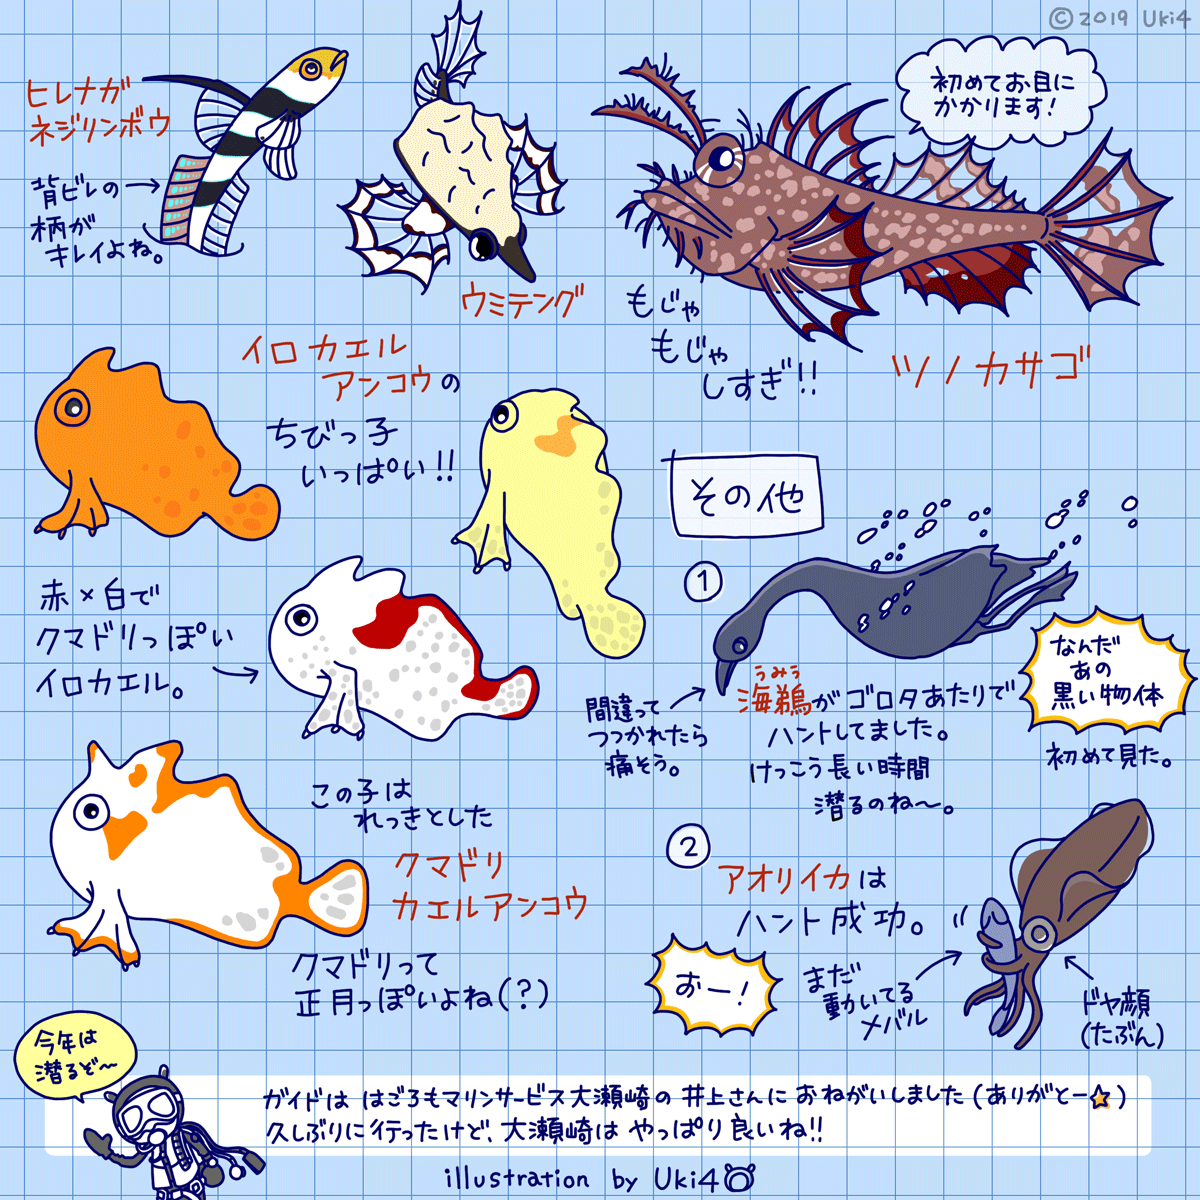 © 2019 Uki4
ヒレナガ
ネジリンボウ
背ビレの
柄が
キレイよね。
ウミテング
初めてお目に
かかります！
もじゃ
もじゃ
しすぎ!!
ツノカサゴ
イロカエル
アンコウの
ちびっ子
いっぱい!!
赤×白で
クマドリっぽい
イロカエル。
この子は
れっきとした
クマドリ
カエルアンコウ
クマドリって
正月っぽいよね(?)
その他
①
間違って
つつかれたら
痛そう。
うみう
海鵜がゴロタあたりで
ハントしてました。
けっこう長い時間
潜るのね〜。
なんだ
あの
黒い物体
初めて見た。
②
アオリイカは
ハント成功。
おー！
まだ
動いてる
メバル
ドヤ顔
(たぶん)
今年は
潜るぞ〜
ガイドは はごろもマリンサービス大瀬崎の 井上さんに おねがいしました(ありがとー☆)
久しぶりに行ったけど、大瀬崎は やっぱり良いね!!
illustration by Uki4